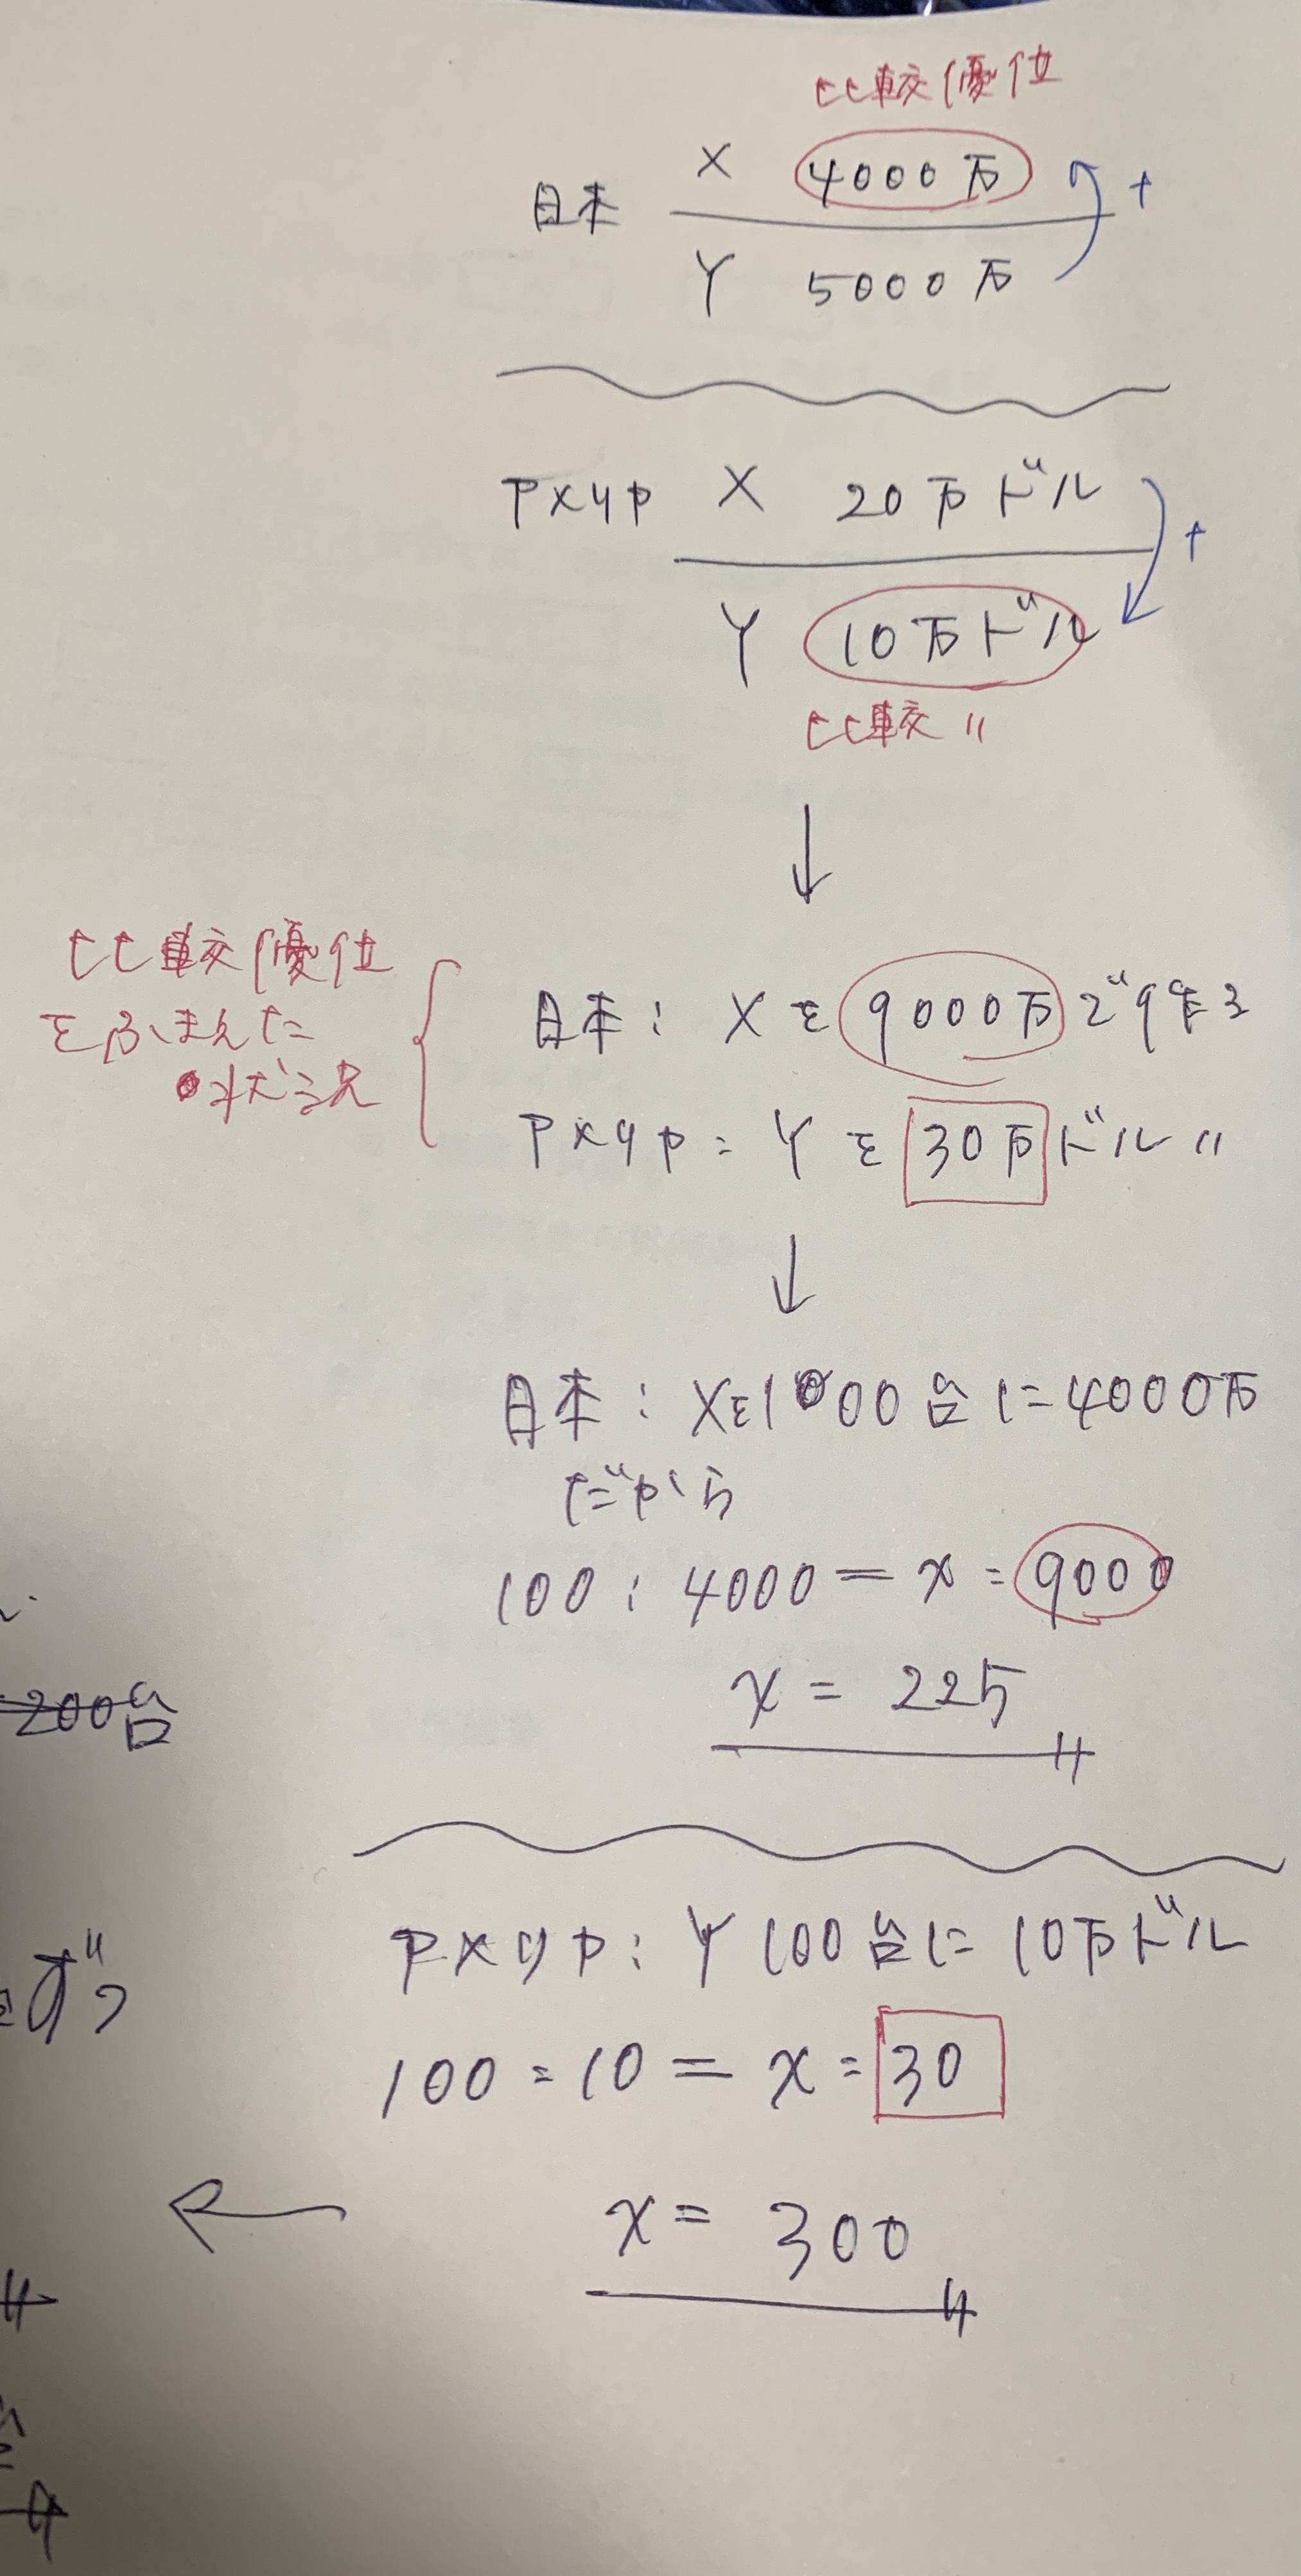 比較優位
X 4000万
日本 +
Y 5000万
アメリカ X 20万ドル
+
Y 10万ドル
比較 〃
↓
比較優位
をふまえた
状況
日本: Xを9000万で作る
アメリカ: Yを30万ドル 〃
↓
日本: Xを100台に4000万
だから
100:4000=x:9000
x=225
200台
アメリカ: Y 100台に10万ドル
100:10=x:30
←
x=300